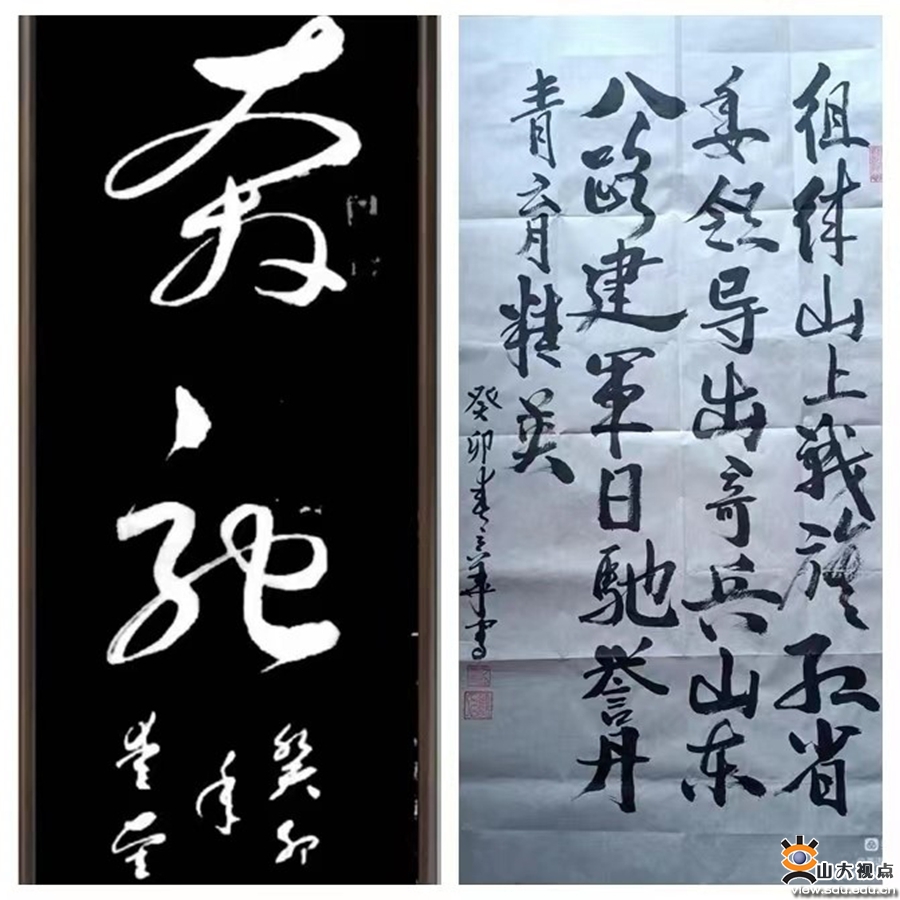 癸卯
年
徂徕山上战旗红省
委领导出奇兵山东
八路建军日馳誉丹
青育精英
癸卯春
山大视点
view.sdu.edu.cn